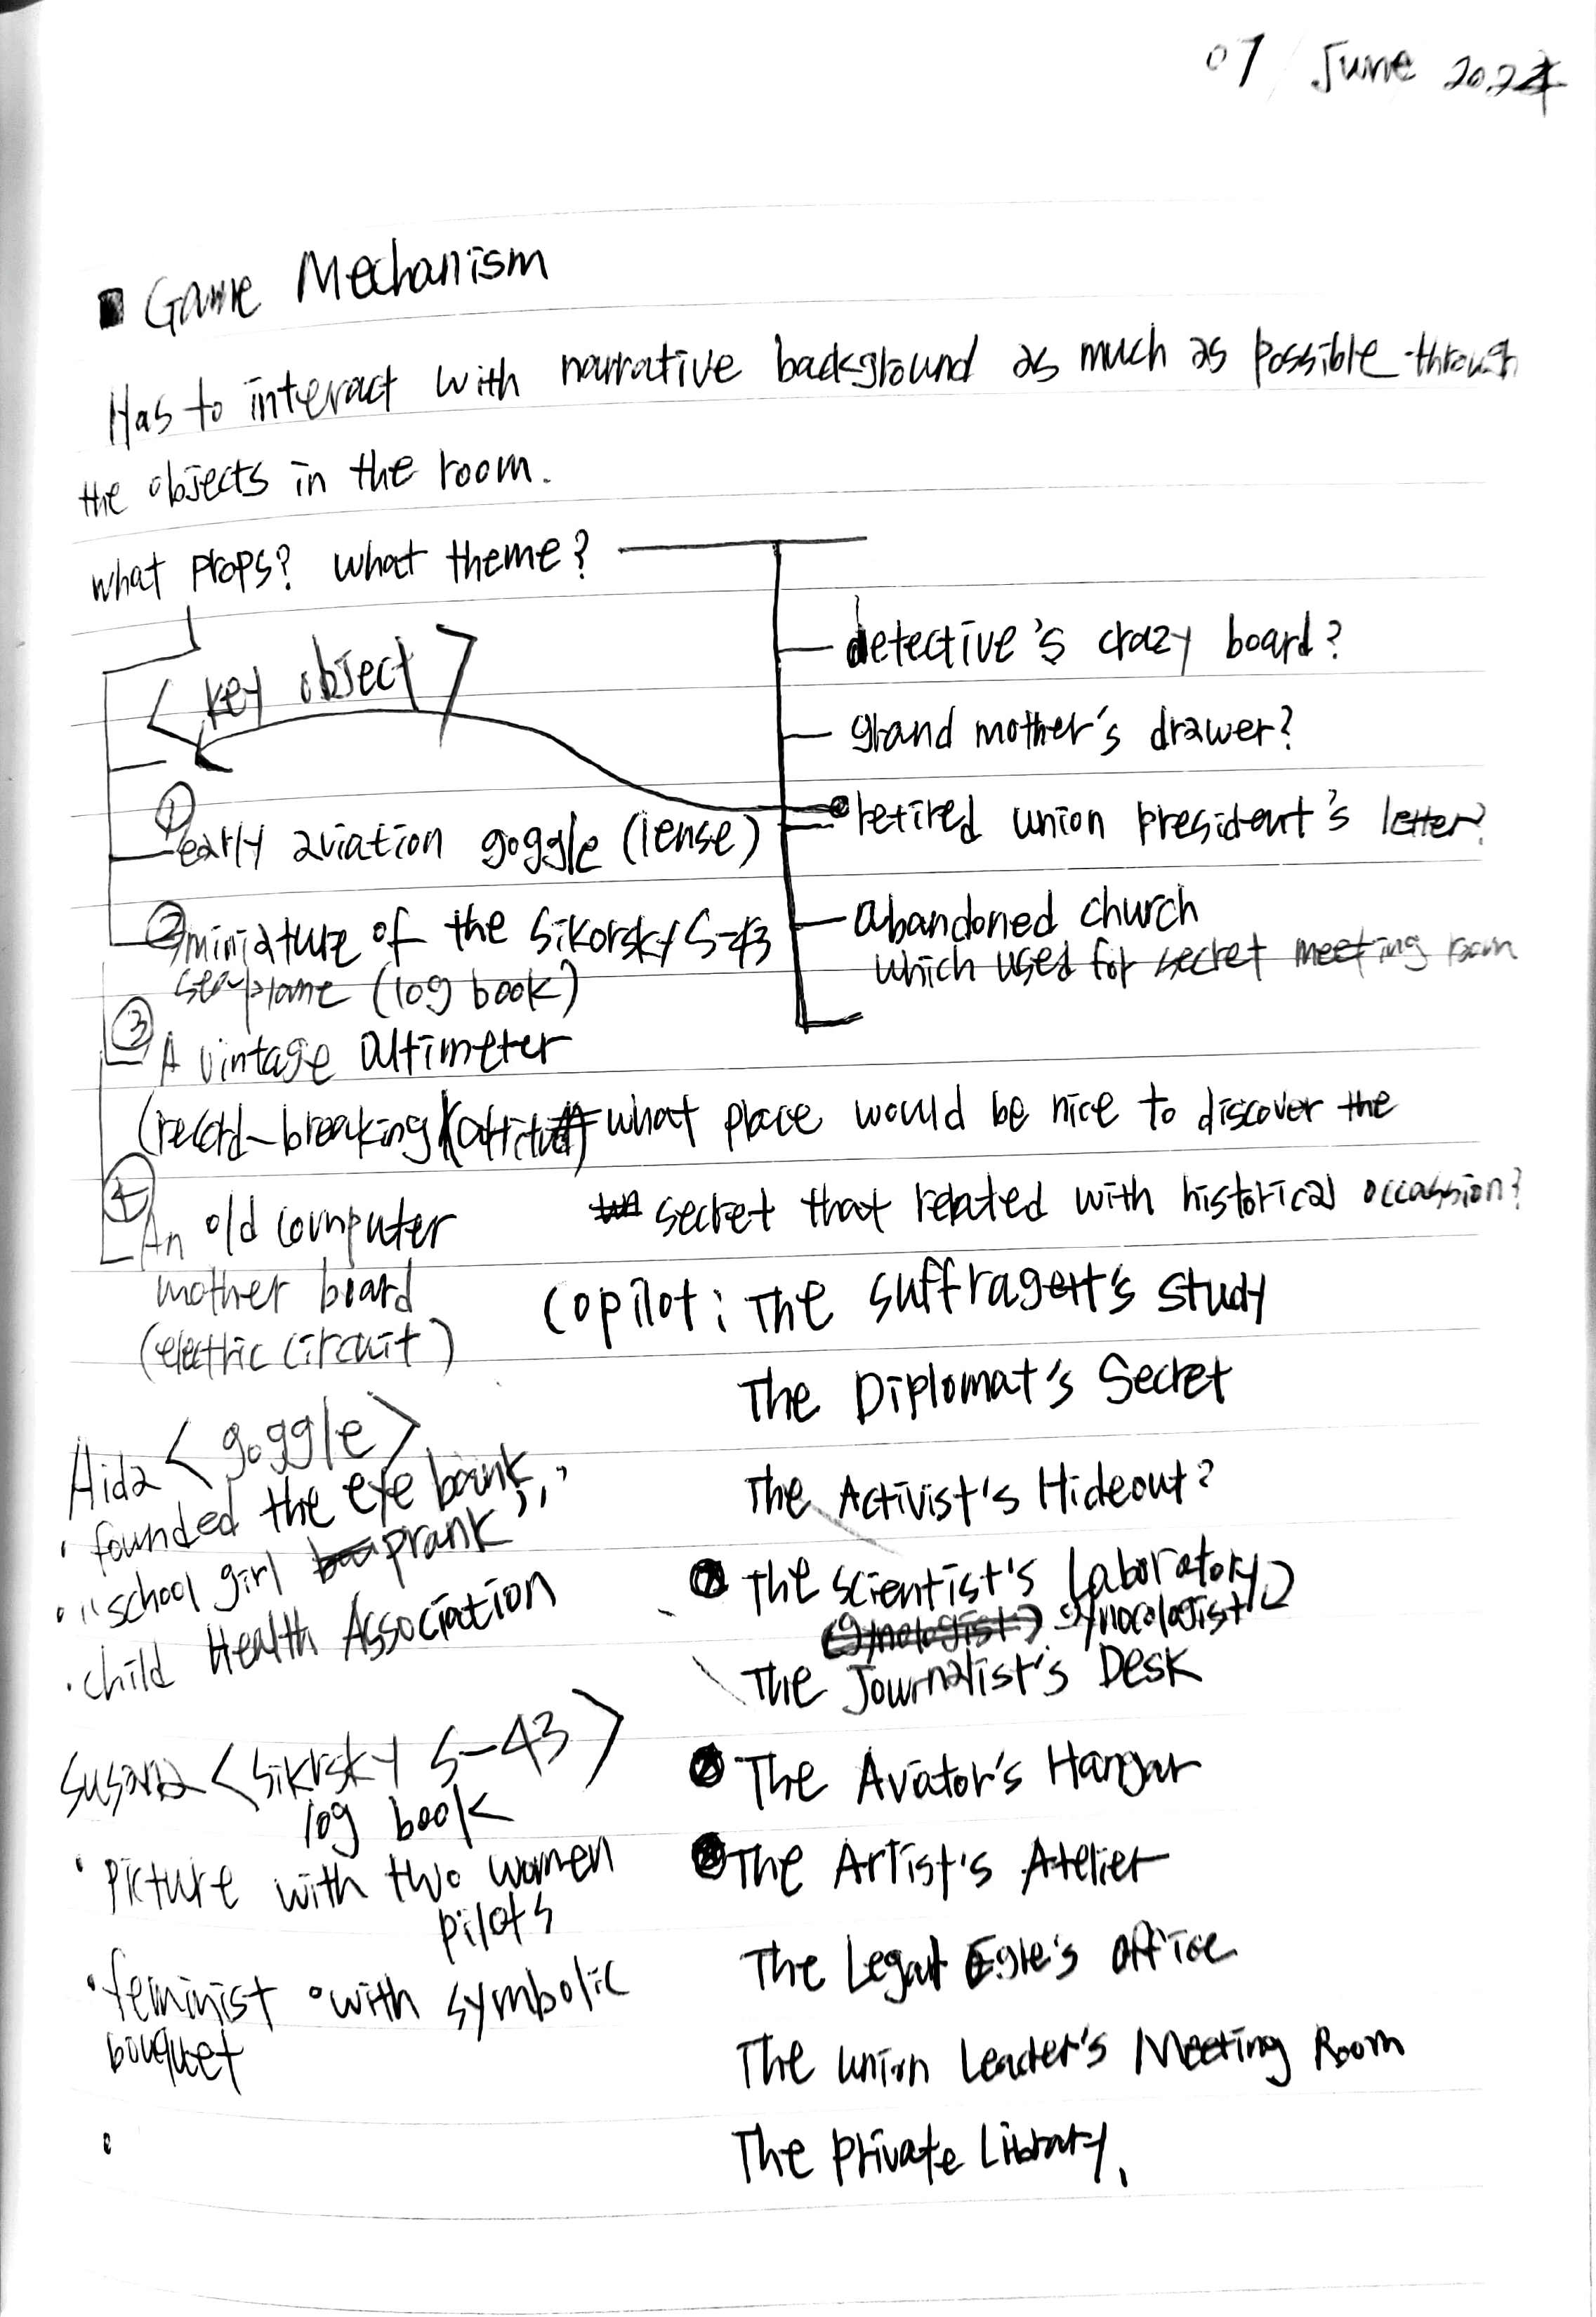 07 / June 2024
■ Game Mechanism
Has to interact with narrative background as much as possible through
the objects in the room.
what props? what theme?
<key object>
① early aviation goggle (lense)
② miniature of the Sikorsky S-43
seaplane (log book)
③ A vintage altimeter
(record-breaking)
④ An old computer
mother board
(electric circuit)
detective's crazy board?
grand mother's drawer?
retired union president's letter?
abandoned church
which used for secret meeting room
what place would be nice to discover the
secret that related with historical occassion?
Copilot: The Suffragett's Study
The Diplomat's Secret
The Activist's Hideout?
The Scientist's Laboratory
The Journalist's Desk
The Aviator's Hangar
The Artist's Atelier
The Legal Egle's office
The union Leader's Meeting Room
The Private Library.
Aida <goggle>
· founded the eye bank
· "school girl prank"
· child Health Association
Susana <Sikrsky S-43>
log book
· Picture with two women
pilots
· feminist · with symbolic
bouquet